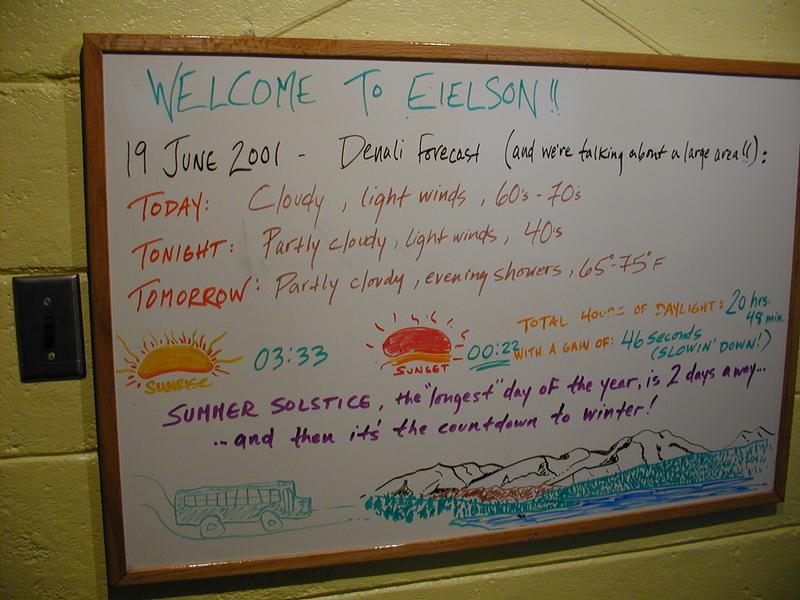 WELCOME TO EIELSON!!
19 JUNE 2001 - Denali Forecast (and we're talking about a large area!!):
TODAY: Cloudy, light winds, 60's - 70's
TONIGHT: Partly cloudy, light winds, 40's
TOMORROW: Partly cloudy, evening showers, 65°-75°F
SUNRISE 03:33
SUNSET 00:22
TOTAL HOURS OF DAYLIGHT: 20 hrs. 48 min.
WITH A GAIN OF: 46 seconds (SLOWIN' DOWN!)
SUMMER SOLSTICE, the "longest" day of the year, is 2 days away...
...and then it's the countdown to winter!